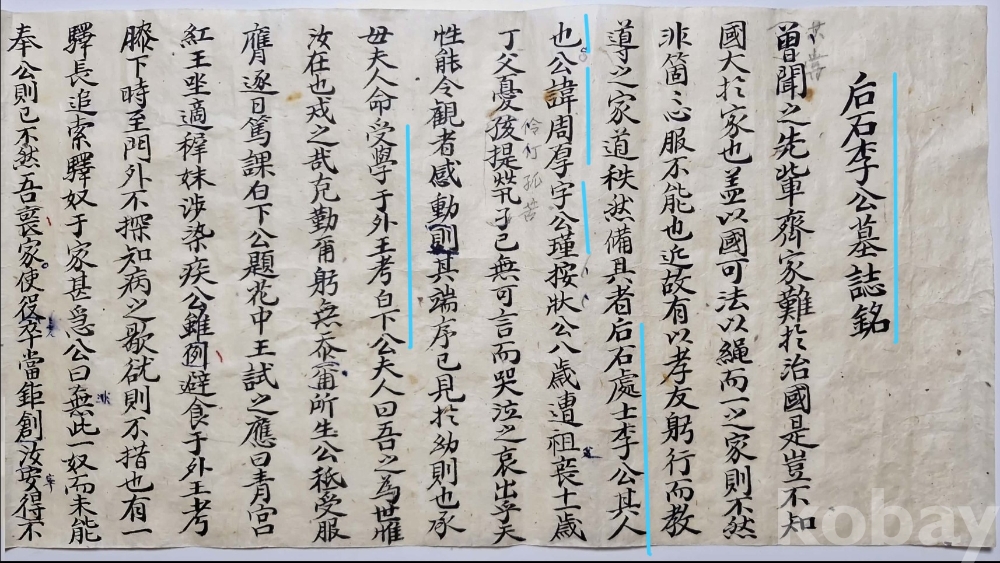 后石李公墓誌銘
曽聞之先軰齊家難於治國是豈不知
國大於家也盖以國可法以繩而一之家則不然
非箇〻心服不能也近故有以孝友躬行而教
導之家道秩然備具者后石處士李公其人
也公諱周厚字公瑾按狀公八歲遭祖喪十一歲
丁父憂孩提煢孑已無可言而哭泣之哀出乎天
伶仃孤苦
性能令觀者感動則其端序已見於幼則也承
母夫人命受學于外王考白下公夫人曰吾之為世惟
汝在也戒之㦲克勤爾躬無忝爾所生公祗受服
膺逐日篤課白下公題花中王試之應曰青宮
紅王坐適稺妹涉染疾公雖例避食于外王考
膝下時至門外不探知病之歇㞃則不措也有一
驛長追索驛奴于家甚急公曰無此一奴而未能
奉公則已不然吾喪家使役卒當鉅創汝安得不
kobay